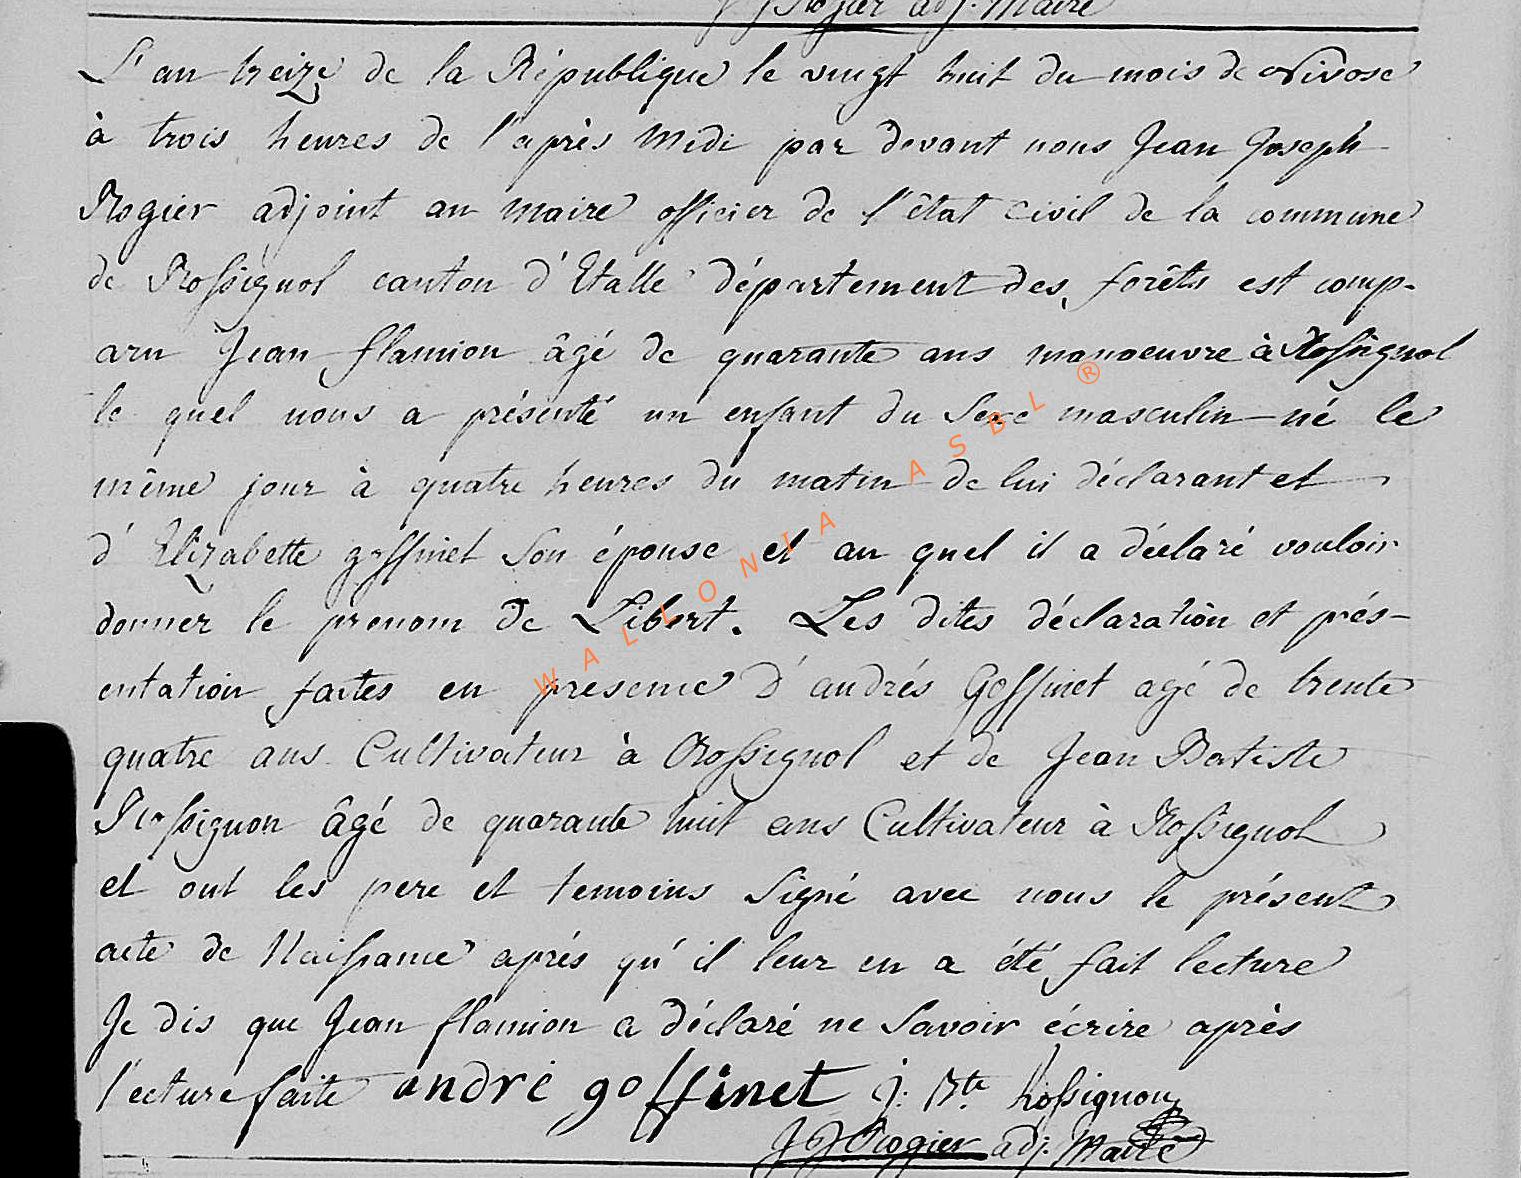 J J Rogier adj. Maire
L'an treize de la République le vingt huit du mois de Nivose
à trois heures de l'après midi par devant nous Jean Joseph
Rogier adjoint au maire officier de l'état civil de la commune
de Rossignol canton d'Etalle département des forêts est comp-
aru Jean flamion âgé de quarante ans manoeuvre à Rossignol
le quel nous a présenté un enfant du Sexe masculin né le
même jour à quatre heures du matin de lui déclarant et
d'Elizabette goffinet Son épouse et au quel il a déclaré vouloir
donner le prenom de Libert. Les dites déclaration et prés-
entation faites en presence d'andrés Goffinet agé de trente
quatre ans Cultivateur à Rossignol et de Jean Batiste
Rossignon âgé de quarante huit ans Cultivateur à Rossignol
et ont les pere et temoins Signé avec nous le présent
acte de Naissance aprés qu'il leur en a été fait lecture
Je dis que Jean flamion a déclaré ne Savoir écrire après
lecture faite andré goffinet J. Bte Rossignon
J J Rogier adj. Maire
WALLONIA ASBL ®